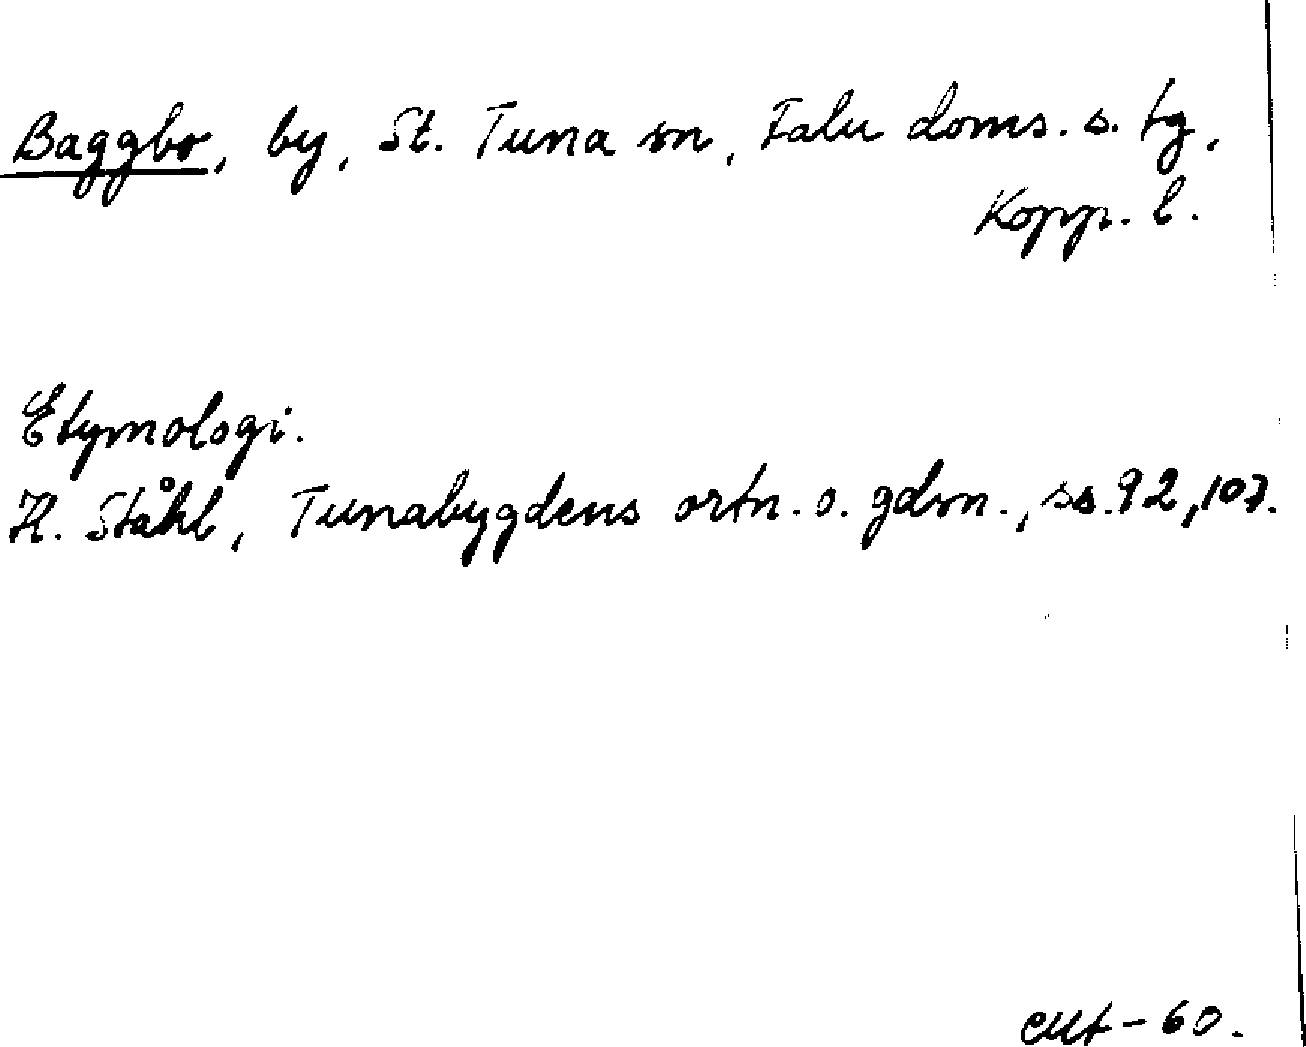 Baggbo, by, St. Tuna sn, Falu doms. s. tg,
Kopp. l.
Etymologi.
H. Ståhl, Tunabygdens ortn. o. gdsn., ss. 92, 107.
-60.